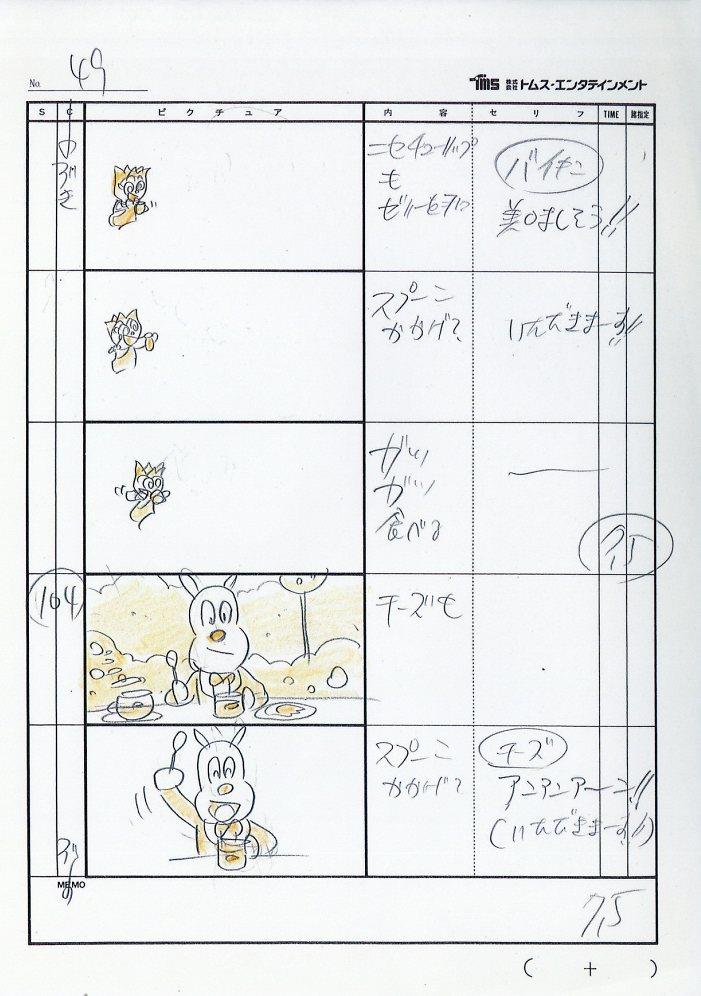 No. 49
TMS 株式会社 トムス・エンタテインメント
S C ピクチュア 内容 セリフ TIME 諸指定
つづき
ニセチューリップ
も
バイキン
美口ましそう!!
スプーン
かかげて
いただきまーす!!
ガツ
ガツ
食べる
7,5
104
チーズも
スプーン
かかげて
チーズ
アンアンアーン!!
(いただきまーす!!)
つづく
MEMO
7,5
( + )